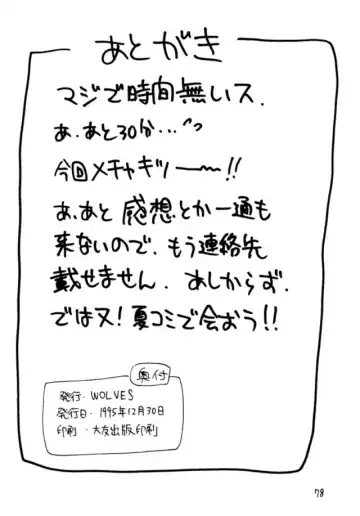 あとがき
マジで時間無いス.
あ.あと30分...^っ
今回メチャキツー──!!
あ、あと 感想とか一通も
来ないので、もう連絡先
載せません. あしからず.
では又!夏コミで会おう!!
奥付
発行.WOLVES
発行日・1995年12月30日
印刷 ・大友出版印刷
78